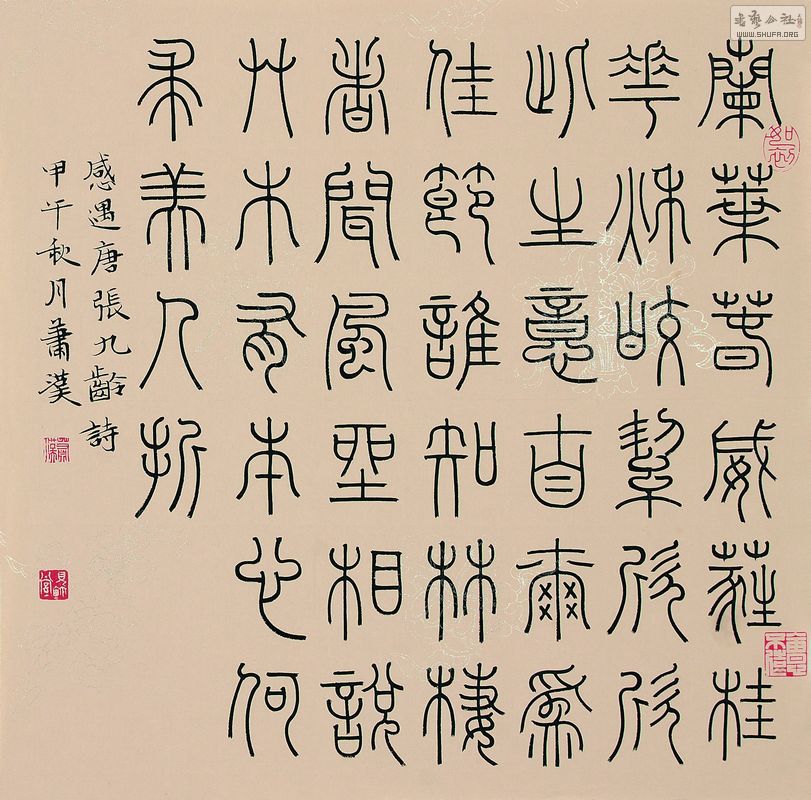 蘭葉春威蕤桂
華秋皎絜欣欣
此生意自爾為
佳節誰知林棲
者聞風坐相說
艸木有本心何
求美人折
感遇唐張九齡詩
甲午秋月蕭漢
書藝公社
WWW.SHUFA.ORG